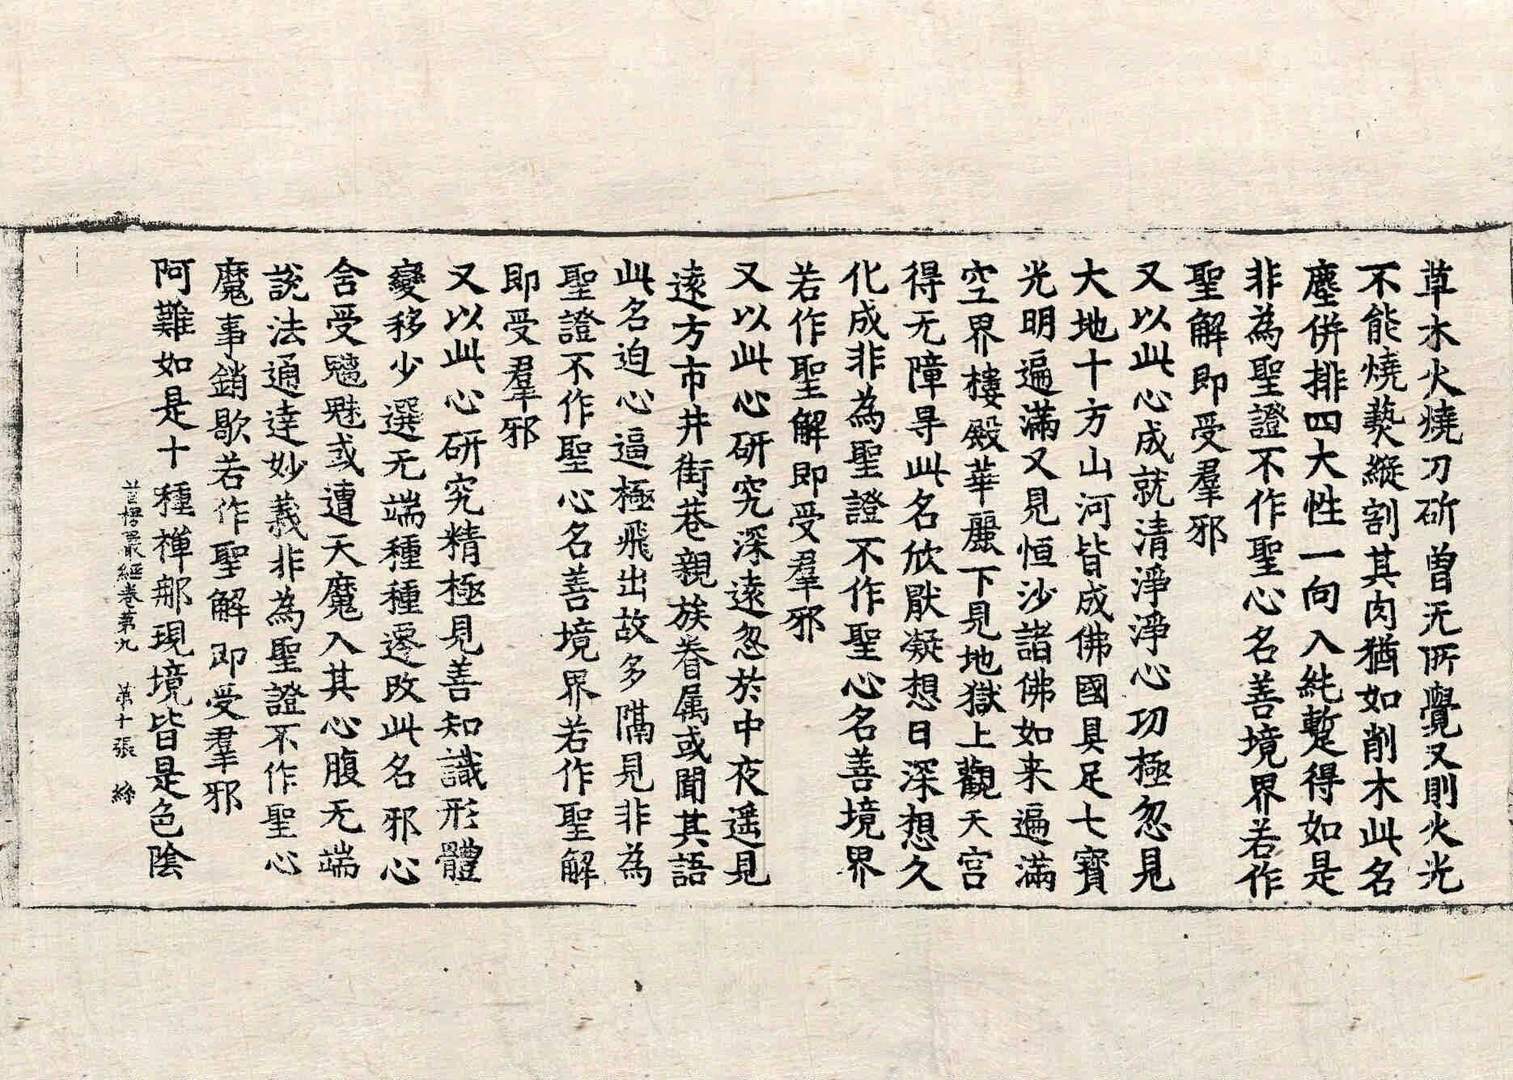 草木火燒刀斫曽无所覺又則火光
不能燒爇縱割其肉猶如削木此名
塵併排四大性一向入純蹔得如是
非為聖證不作聖心名善境界若作
聖解即受羣邪
又以此心成就清淨淨心功極忽見
大地十方山河皆成佛國具足七寳
光明遍滿又見恒沙諸佛如来遍滿
空界樓殿華麗下見地獄上觀天宫
得无障㝵此名欣猒凝想日深想久
化成非為聖證不作聖心名善境界
若作聖解即受羣邪
又以此心研究深遠忽於中夜遥見
遠方市井街巷親族眷属或聞其語
此名迫心逼極飛出故多隔見非為
聖證不作聖心名善境界若作聖解
即受羣邪
又以此心研究精極見善知識形體
變移少選无端種種遷改此名邪心
含受魑魅或遭天魔入其心腹无端
說法通達妙義非為聖證不作聖心
魔事銷歇若作聖解即受羣邪
阿難如是十種禪那現境皆是色陰
首楞嚴經卷第九 第十張 絲